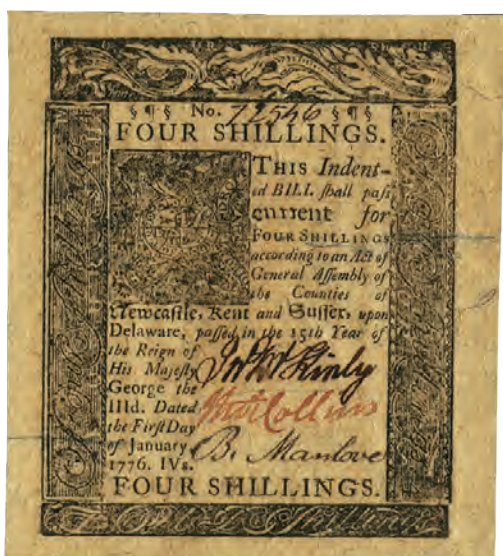 § ¶ § No. 72546 § ¶ §
FOUR SHILLINGS.
THIS Indent-
ed BILL ſhall paſs
current for
FOUR SHILLINGS
according to an Act of
General Aſſembly of
the Counties of
Newcaſtle, Kent and Suſſex, upon
Delaware, paſſed in the 15th Year of
the Reign of
His Majeſty
George the
IIId. Dated
the Firſt Day
of January
1776. IVs.
Jno. McKinly
Collins
B. Manlove
FOUR SHILLINGS.